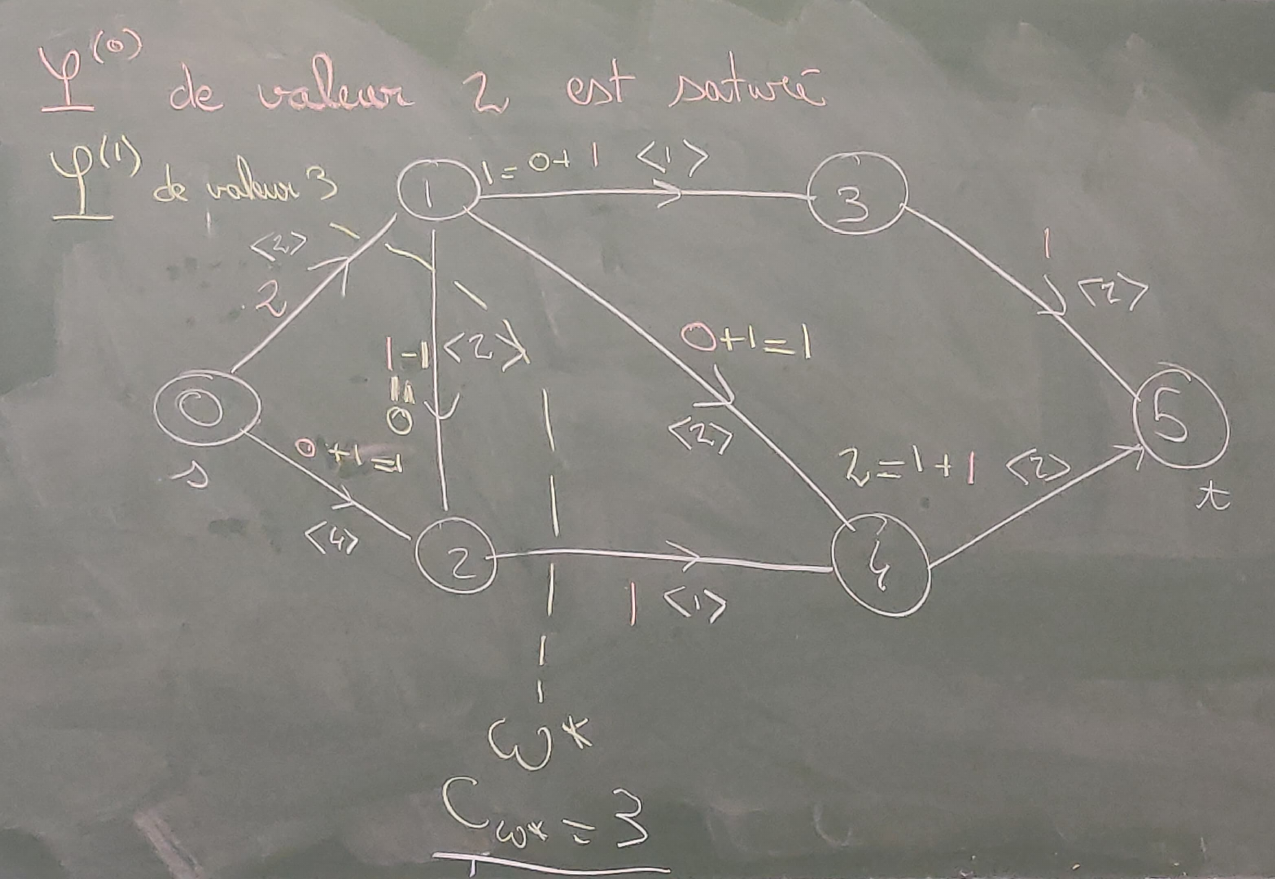 φ^(0) de valeur 2 est saturé
φ^(1) de valeur 3
1 1=0+1 <1> 3
<2>
2
1
<2>
1-1 <2>
0+1=1
=
0
<2>
0
s
0+1=1
<4>
2=1+1 <2>
5
t
2
4
1 <1>
ω*
C_ω* = 3